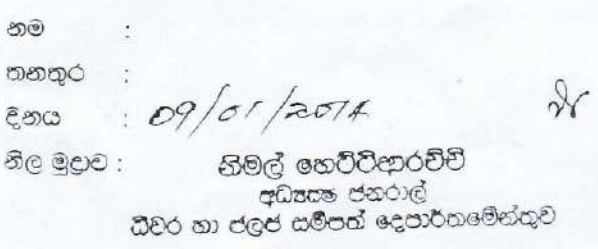 නම :
තනතුර :
දිනය : 09/01/2014
නිල මුද්‍රාව : නිමල් හෙට්ටිආරච්චි
අධ්‍යක්ෂ ජනරාල්
ධීවර හා ජලජ සම්පත් දෙපාර්තමේන්තුව